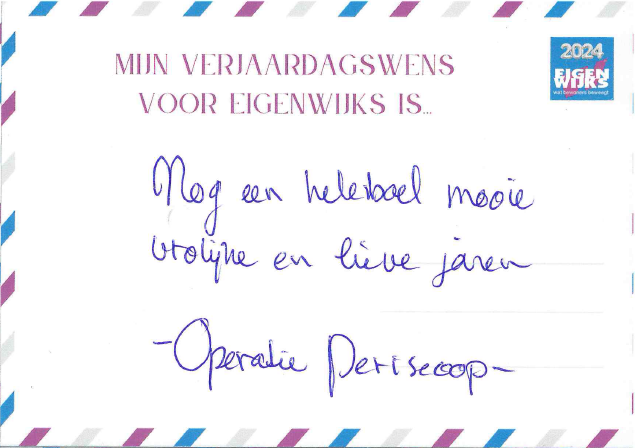 MIJN VERJAARDAGSWENS
VOOR EIGENWIJKS IS...
2024
EIGEN
WIJKS
Nog een heleboel mooie
vrolijke en lieve jaren
-Operatie Periscoop-